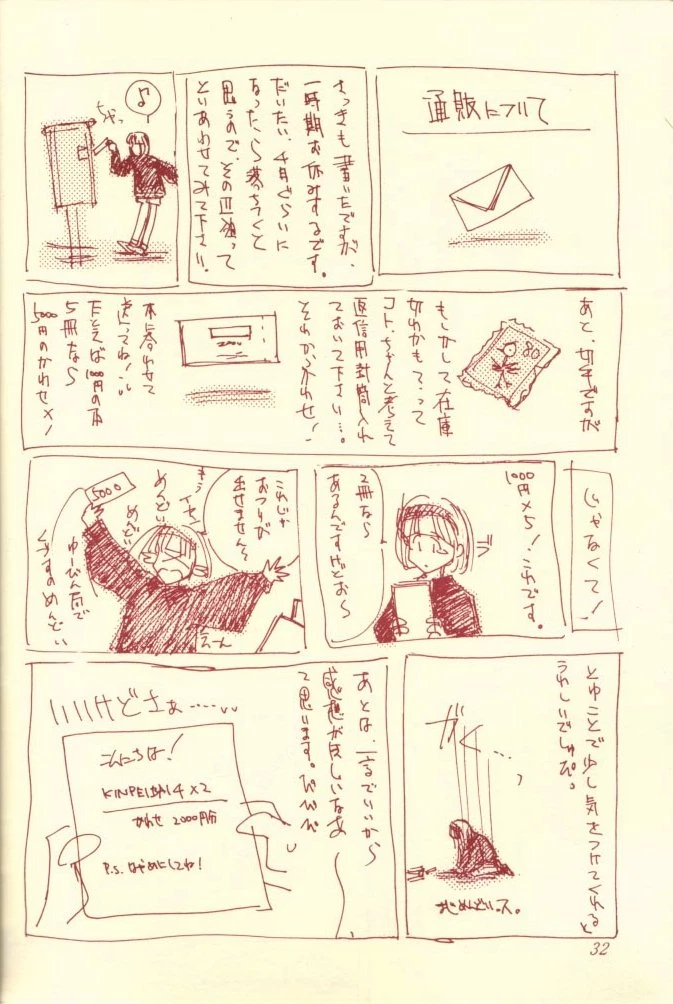 通販について
さっきも書いたですが、
一時期お休みするです。
だいたい、4月ぐらいに
なったら落ちつくと
思うので、その辺狙って
といあわせてみて下さい。
♪
ちゃっ
あと、切手ですが
80
もしかして在庫
切れかも?って
コト、ちゃんと考えて
返信用封筒入れ
ておいて下さい…。
それから、かわせ!
本に合わせて
送ってね!
たとえば1000円の本
5冊なら
5000円のかわせ×!
じゃなくて!
1000円×5!これです。
2冊なら
あるんですけどお〜
これじゃ
おつりが
出せません〜
もうイヤン
めんどい
めんどい
5000
ゆーびん局で
くずすのめんどい
えーん
とゆことで少し気をつけてくれると
うれしいでしゅぴ。
がく…
めんどいス。
あとは、一言でいいから
感想が欲しいなあ
て思います。ぴぴぴ
いいけどさぁ……
こんにちは!
KINPEI 4×2
かわせ 2000円分
P.S. はやめにしてね!
32